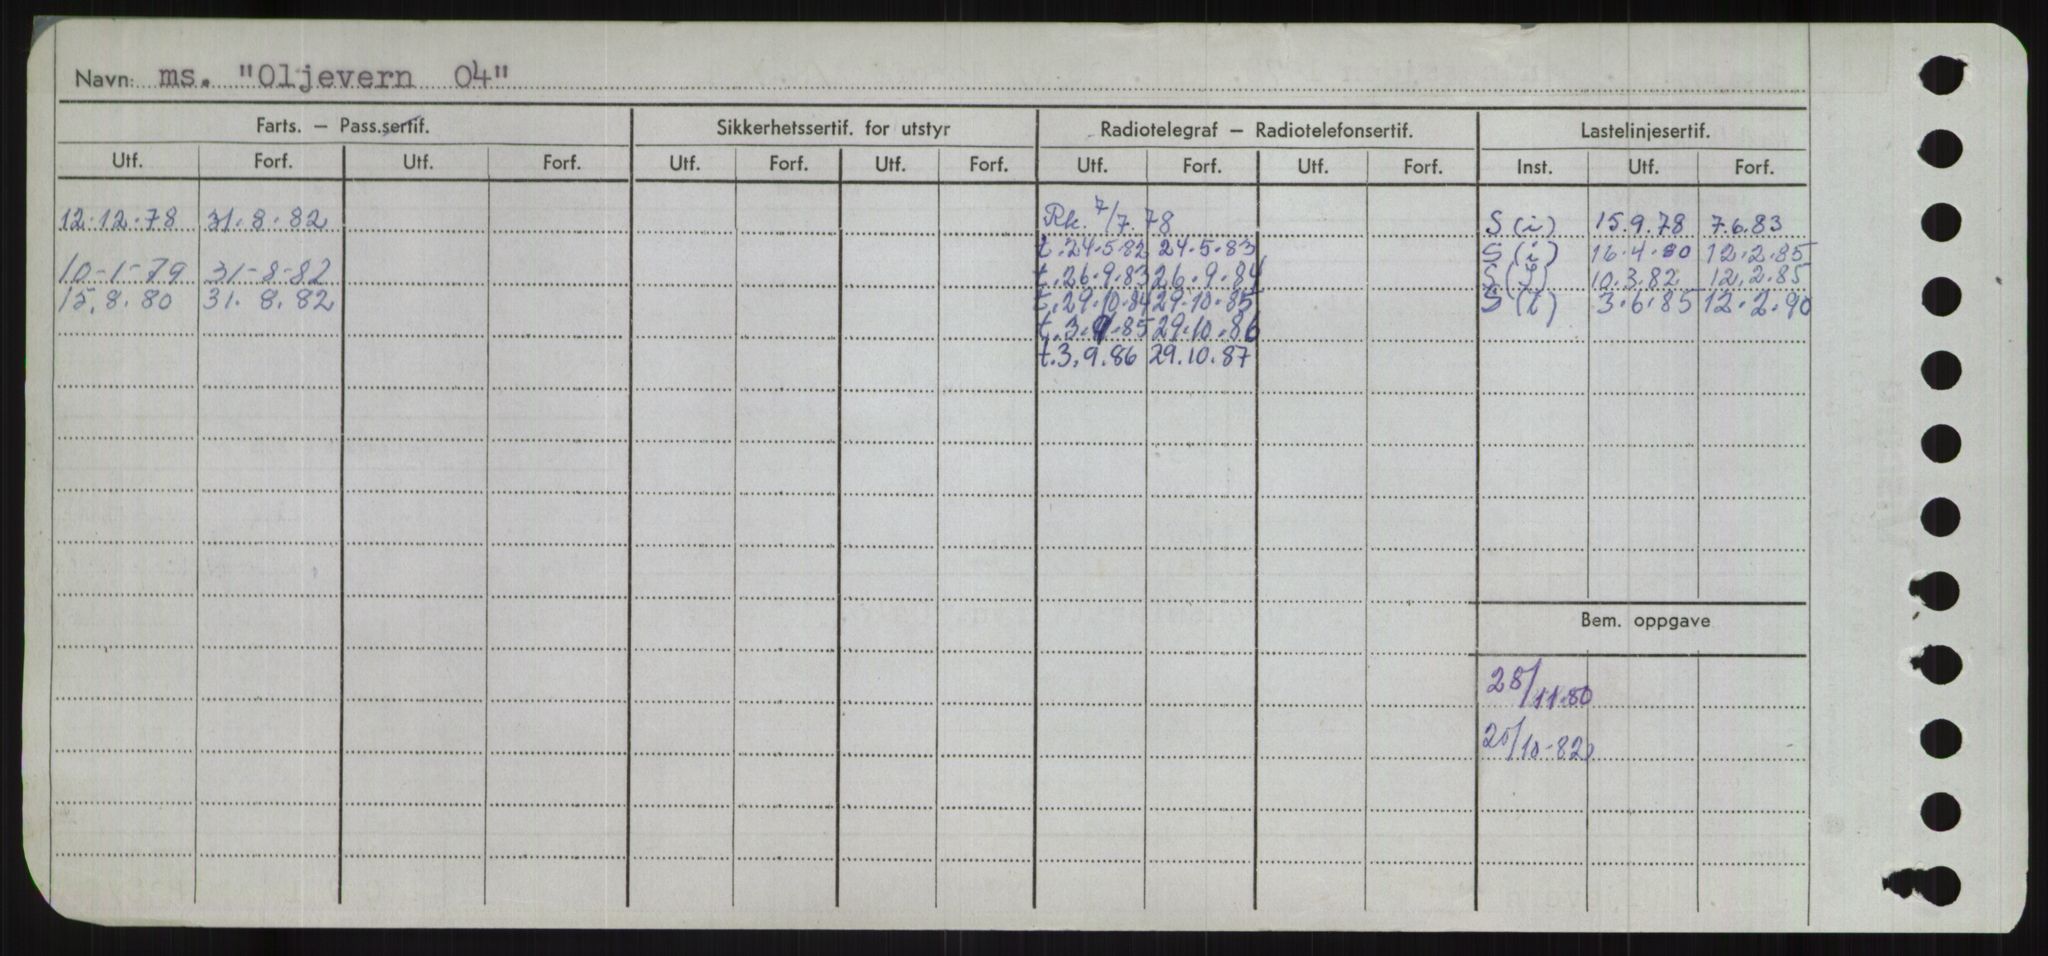 Navn: ms. "Oljevern 04"
Farts. – Pass.sertif. Sikkerhetssertif. for utstyr Radiotelegraf – Radiotelefonsertif. Lastelinjesertif.
Utf. Forf. Utf. Forf. Utf. Forf. Utf. Forf. Utf. Forf. Utf. Forf. Inst. Utf. Forf.
12.12.78 31.8.82 Rk. 7/7.78 S (i) 15.9.78 7.6.83
t.24.5.82 24.5.83 S (i) 16.4.80 12.2.85
10-1-79 31-8-82 t.26.9.83 26.9.84 S (i) 10.3.82 12.2.85
15.8.80 31.8.82 t.29.10.84 29.10.85 S (i) 3.6.85 12.2.90
t.3.9.85 29.10.86
t.3.9.86 29.10.87
Bem. oppgave
28/11.80
25/10-82